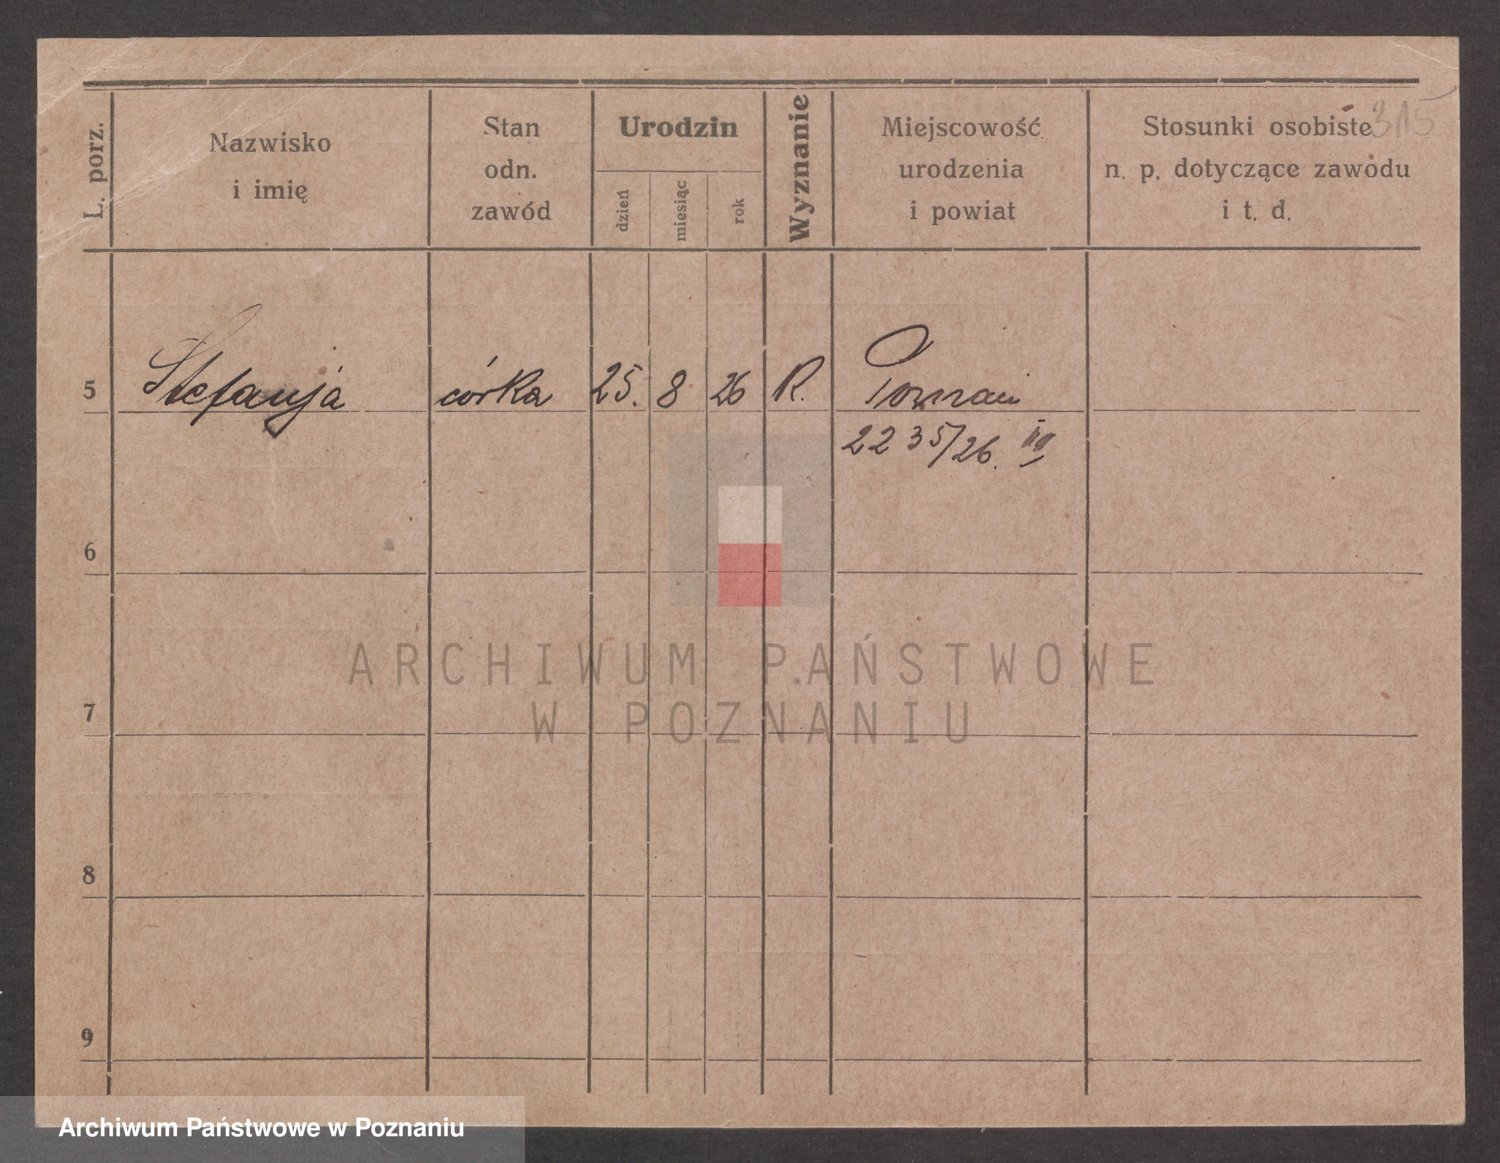 315
L. porz.
Nazwisko
i imię
Stan
odn.
zawód
Urodzin
dzień
miesiąc
rok
Wyznanie
Miejscowość
urodzenia
i powiat
Stosunki osobiste
n. p. dotyczące zawodu
i t. d.
5 Stefanja córka 25. 8 26 R. Poznań
2235/26. III
6
7
8
9
ARCHIWUM PAŃSTWOWE
W POZNANIU
Archiwum Państwowe w Poznaniu